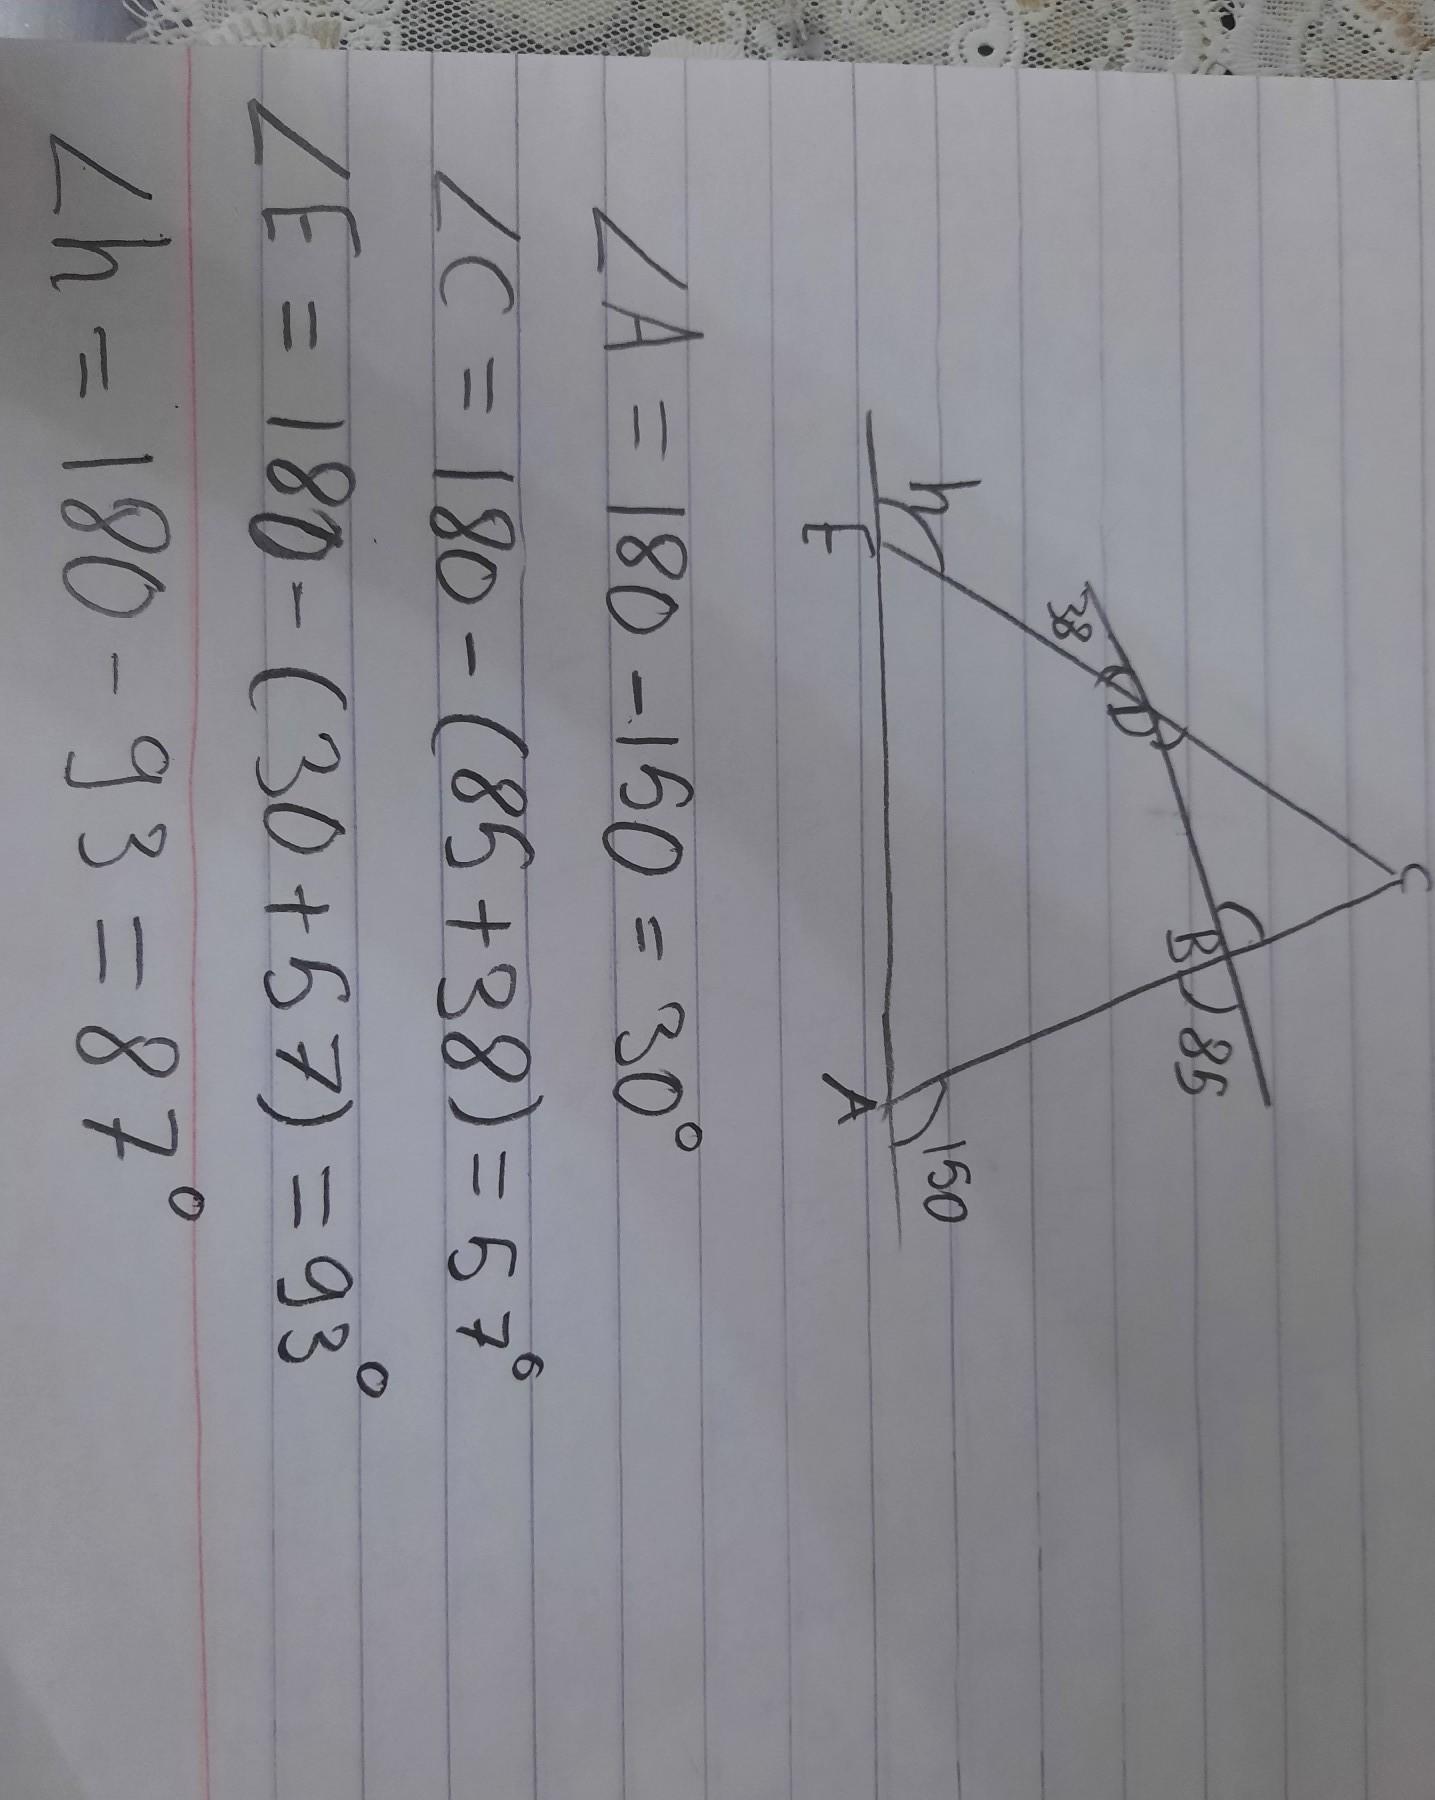 C
B
85
D
38
h
E
A
150
∠A = 180 - 150 = 30°
∠C = 180 - (85 + 38) = 57°
∠E = 180 - (30 + 57) = 93°
∠h = 180 - 93 = 87°